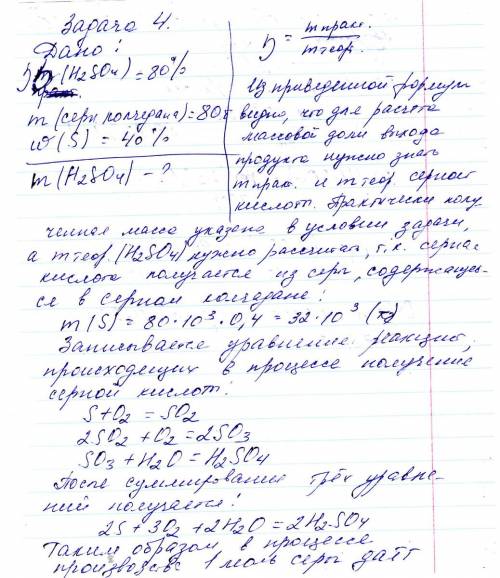 Задача 4.
Дано:
η (H₂SO₄) = 80%
m (серн колчедана) = 80т
ω (S) = 40%
m (H₂SO₄) – ?
η = m практ. / m теор.
Из приведенной формулы
видно, что для расчета
массовой доли выхода
продукта нужно знать
m прак. и m теор. серной
кислоты. Практически полу-
ченная масса указана в условии задачи,
а m теор. (H₂SO₄) нужно рассчитать, т.к. серная
кислота получается из серы, содержащей-
ся в серном колчедане:
m(S) = 80·10³·0,4 = 32·10³ (г)
Записывается уравнение реакций,
происходящих в процессе получение
серной кислоты:
S+O₂ = SO₂
2SO₂ + O₂ = 2SO₃
SO₃ + H₂O = H₂SO₄
После суммирования трёх уравне-
ний получается:
2S + 3O₂ + 2H₂O = 2H₂SO₄
Таким образом в процессе
производств 1 моль серы даёт